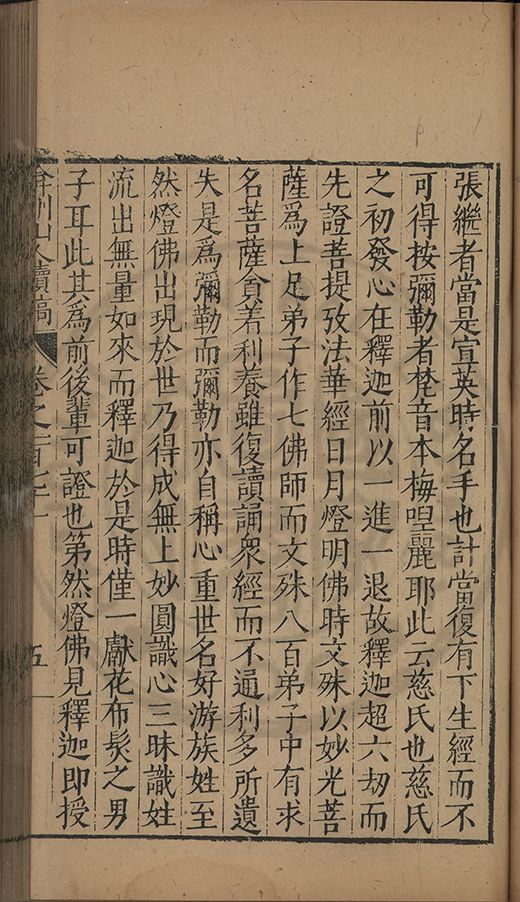 張繼者當是宣英時名手也計當復有下生經而不
可得按彌勒者梵音本梅哩麗耶此云慈氏也慈氏
之初發心在釋迦前以一進一退故釋迦超六劫而
先證菩提攷法華經日月燈明佛時文殊以妙光菩
薩爲上足弟子作七佛師而文殊八百弟子中有求
名菩薩貪着利養雖復讀誦衆經而不通利多所遺
失是爲彌勒而彌勒亦自稱心重世名好游族姓至
然燈佛出現於世乃得成無上妙圓識心三昧識姓
流出無量如來而釋迦於是時僅一獻花布髮之男
子耳此其爲前後輩可證也第然燈佛見釋迦即授
弇州山人續稿 卷之一百七十一 五